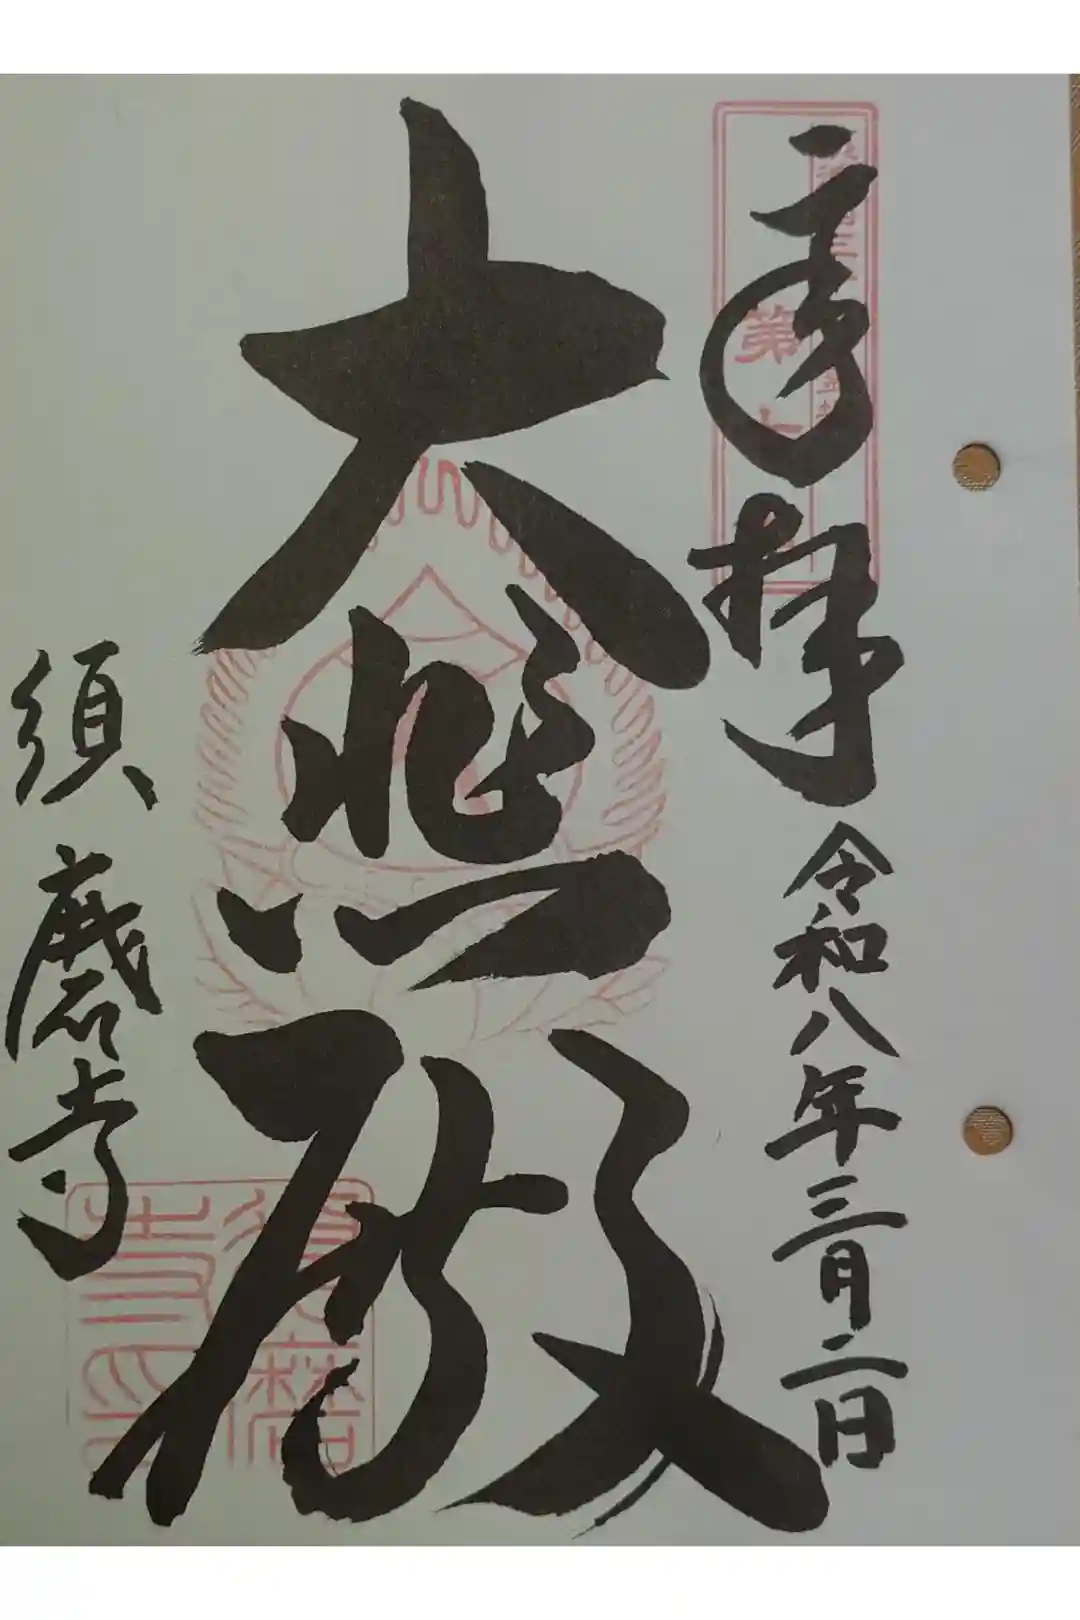 奉拝
令和八年三月二日
第
大悲殿
須磨寺